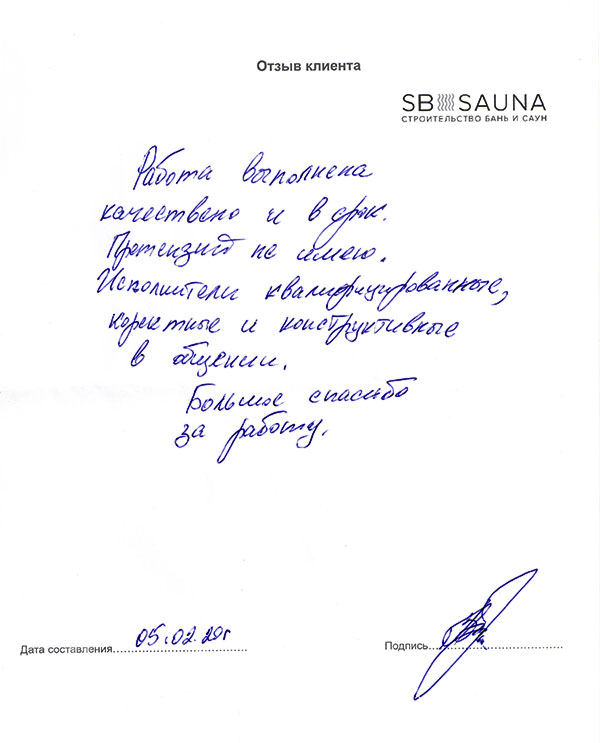 Отзыв клиента
SB SAUNA
СТРОИТЕЛЬСТВО БАНЬ И САУН
Работа выполнена
качествено и в срок.
Претензий не имею.
Исполнители квалифицированные,
коректные и конструктивные
в общении.
Большое спасибо
за работу.
05.02.20г
Дата составления
Подпись